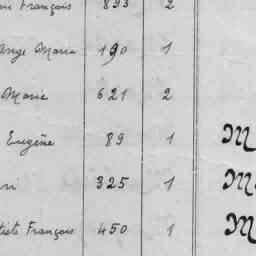 François 893 2
Ange Marie 190 1
Marie 621 2
Eugène 89 1 M
325 1 M
François 450 1 M